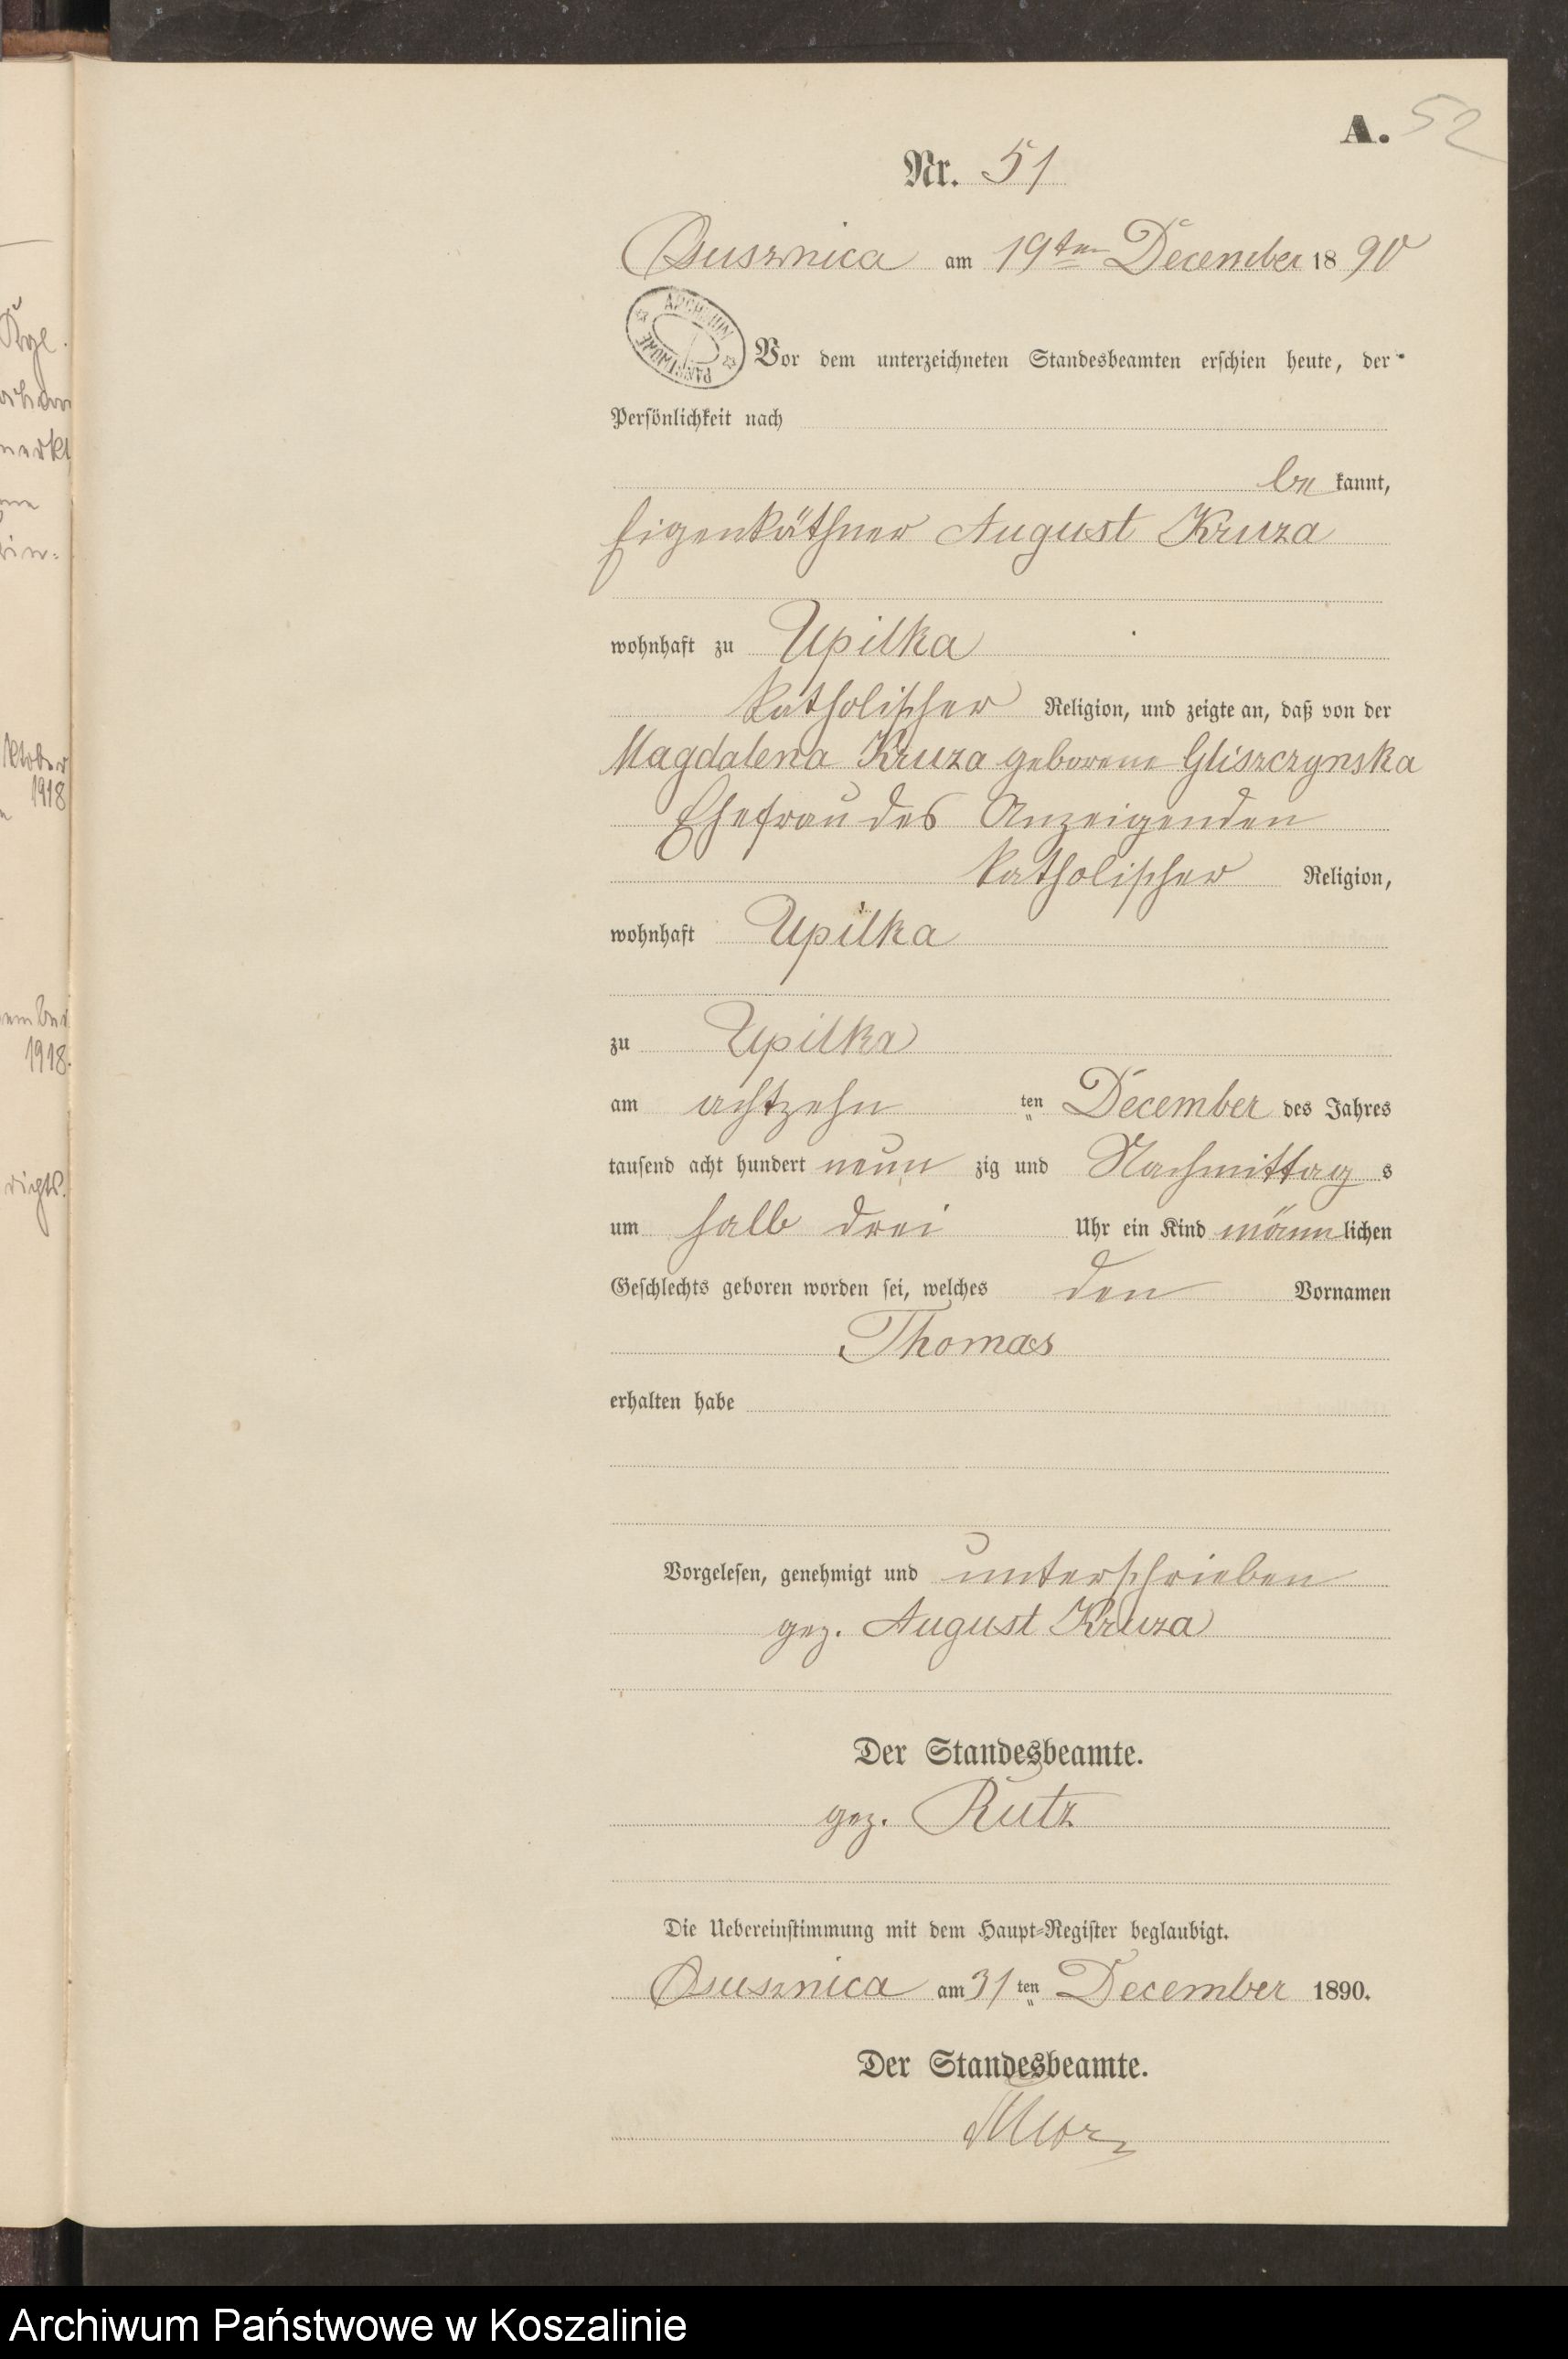 A. 52
Nr. 51
Ossusznica am 19ten December 1890
ARCHIWUM PAŃSTWOWE
Vor dem unterzeichneten Standesbeamten erschien heute, der
Persönlichkeit nach
be kannt,
Eigenkäthner August Kruza
wohnhaft zu Upilka
katholischer Religion, und zeigte an, daß von der
Magdalena Kruza geborene Gliszczynska
Ehefrau des Anzeigenden
katholischer Religion,
wohnhaft Upilka
zu Upilka
am achtzehn ten December des Jahres
tausend acht hundert neun zig und Nachmittag s
um halb drei Uhr ein Kind männlichen
Geschlechts geboren worden sei, welches den Vornamen
Thomas
erhalten habe
Vorgelesen, genehmigt und unterschrieben
gez. August Kruza
Der Standesbeamte.
gez. Rutz
Die Uebereinstimmung mit dem Haupt-Register beglaubigt.
Ossusznica am 31 ten December 1890.
Der Standesbeamte.
Oktober
1918
1918.
Archiwum Państwowe w Koszalinie